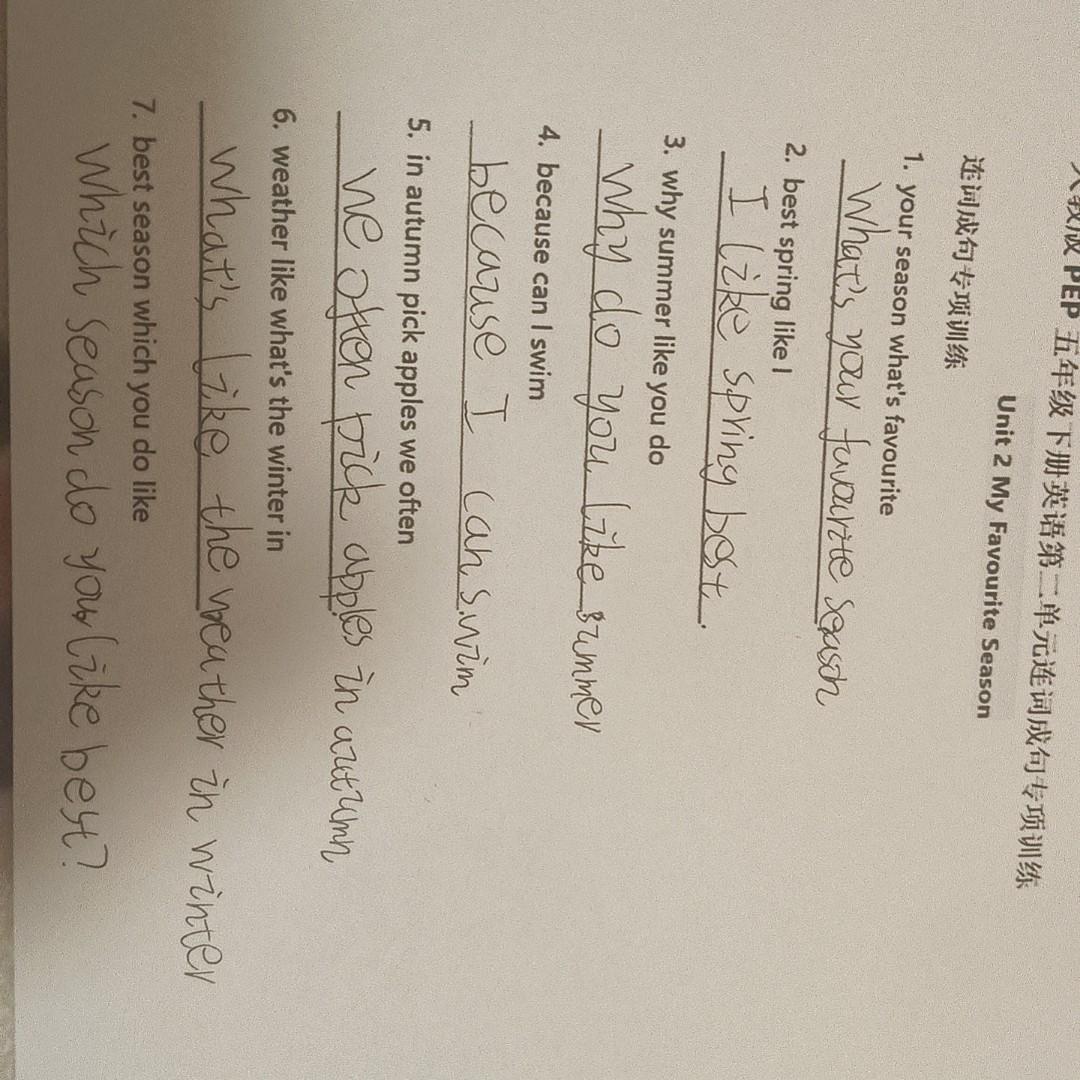 人教版 PEP 五年级下册英语第二单元连词成句专项训练
Unit 2 My Favourite Season
连词成句专项训练
1. your season what's favourite
What's your favourite season
2. best spring like I
I like spring best.
3. why summer like you do
Why do you like summer
4. because can I swim
because I can swim
5. in autumn pick apples we often
We often pick apples in autumn
6. weather like what's the winter in
What's like the weather in winter
7. best season which you do like
Which season do you like best?